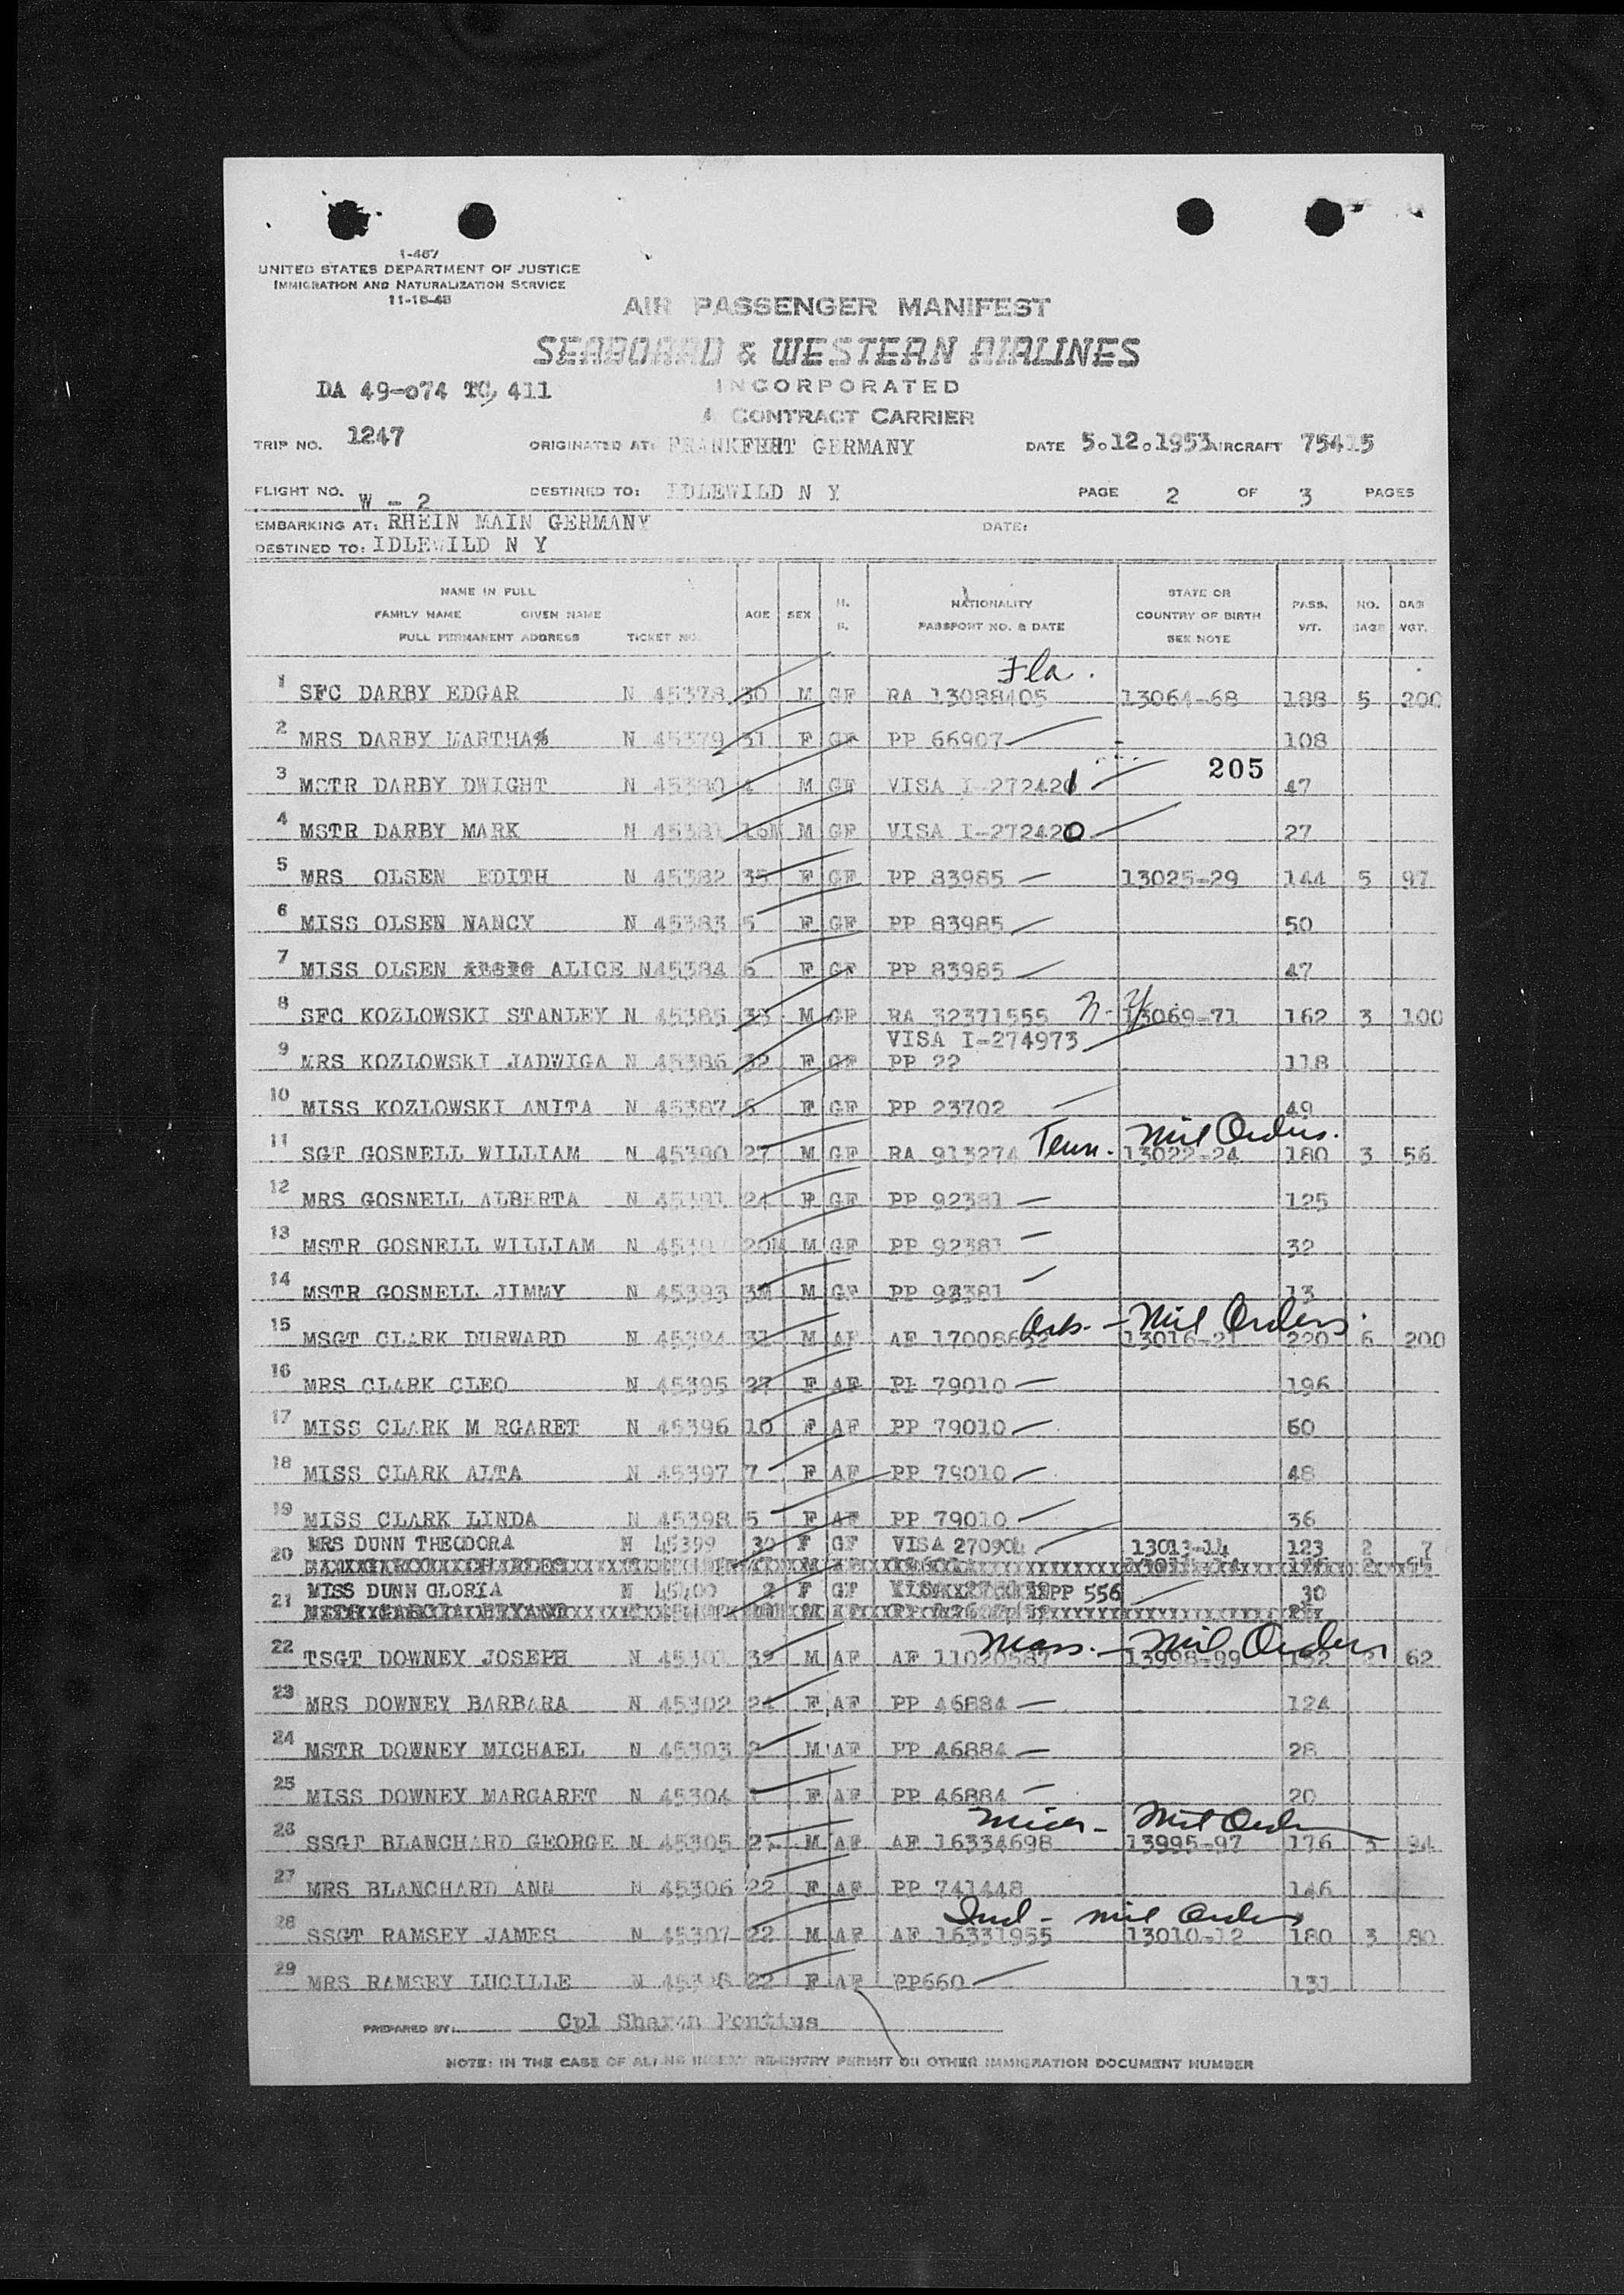 1-467
UNITED STATES DEPARTMENT OF JUSTICE
IMMIGRATION AND NATURALIZATION SERVICE
11-15-48
AIR PASSENGER MANIFEST
SEABOARD & WESTERN AIRLINES
INCORPORATED
DA 49-074 TC, 411
A CONTRACT CARRIER
TRIP NO. 1247 ORIGINATED AT: GERMANY DATE 5.12.1953 AIRCRAFT 75415
FLIGHT NO. W - 2 DESTINED TO: IDLEWILD N Y PAGE 2 OF 3 PAGES
EMBARKING AT: RHEIN MAIN GERMANY DATE:
DESTINED TO: IDLEWILD N Y
NAME IN FULL
FAMILY NAME GIVEN NAME
FULL PERMANENT ADDRESS TICKET NO.
AGE SEX
NATIONALITY
PASSPORT NO. & DATE
STATE OR
COUNTRY OF BIRTH
SEE NOTE
PASS. WT. NO. BAGS BAG WGT.
Fla.
1 SFC DARBY EDGAR N 45378 30 M GF RA 13088405 13064-68 188 5 200
2 MRS DARBY MARTHA N 45379 31 F GF PP 66907 - 108
205
3 MSTR DARBY DWIGHT N 45380 4 M GF VISA I-272421 47
4 MSTR DARBY MARK N 45381 M GF VISA I-272420 27
5 MRS OLSEN EDITH N 45382 35 F GF PP 83985 13025-29 144 5 97
6 MISS OLSEN NANCY N 45383 5 F GF PP 83985 50
7 MISS OLSEN ALICE N45384 6 F GF PP 83985 47
8 SFC KOZLOWSKI STANLEY N 45385 M GF RA 32371555 N.Y 13069-71 162 3 100
VISA I-274973
9 MRS KOZLOWSKI JADWIGA N 45386 32 F GF PP 22 118
10 MISS KOZLOWSKI ANITA N 45387 F GF PP 23702 49
11 SGT GOSNELL WILLIAM N 45390 27 M GF RA 913274 Tenn. - Mil Orders. 13022-24 180 3 56
12 MRS GOSNELL ALBERTA N 45391 24 F GF PP 92381 125
13 MSTR GOSNELL WILLIAM N 20M M GF PP 92381 32
14 MSTR GOSNELL JIMMY N 45393 3M M GF PP 92381 13
Ark. - Mil Orders.
15 MSGT CLARK DURWARD N 45394 M AF AF 17008632 13016-21 220 6 200
16 MRS CLARK CLEO N 45395 27 F AF PP 79010 196
17 MISS CLARK M RGARET N 45396 10 F AF PP 79010 60
18 MISS CLARK ALTA N 45397 7 F AF PP 79010 48
19 MISS CLARK LINDA N 45398 5 F AF PP 79010 36
20 MRS DUNN THEODORA N 45399 30 F GF VISA 270904 13013-14 123 2 7
21 MISS DUNN GLORIA N 45400 F GF PP 556 30
Mass. - Mil Orders
22 TSGT DOWNEY JOSEPH N 45301 39 M AF AF 11020587 13998-99 152 2 62
23 MRS DOWNEY BARBARA N 45302 24 F AF PP 46884 124
24 MSTR DOWNEY MICHAEL N 45303 2 M AF PP 46884 28
25 MISS DOWNEY MARGARET N 45304 1 F AF PP 46884 20
Mil Orders
26 SSGT BLANCHARD GEORGE N 45305 M AF AF 16334698 13995-97 176 3 94
27 MRS BLANCHARD ANN N 45306 22 F AF PP 741448 146
Ind - Mil Orders
28 SSGT RAMSEY JAMES N 45307 22 M AF AF 16331955 13010-12 180 3 80
29 MRS RAMSEY LUCILLE N 22 F AF PP660 131
PREPARED BY: Cpl Pontius
NOTE: IN THE CASE OF ALIENS INSERT RE-ENTRY PERMIT OR OTHER IMMIGRATION DOCUMENT NUMBER